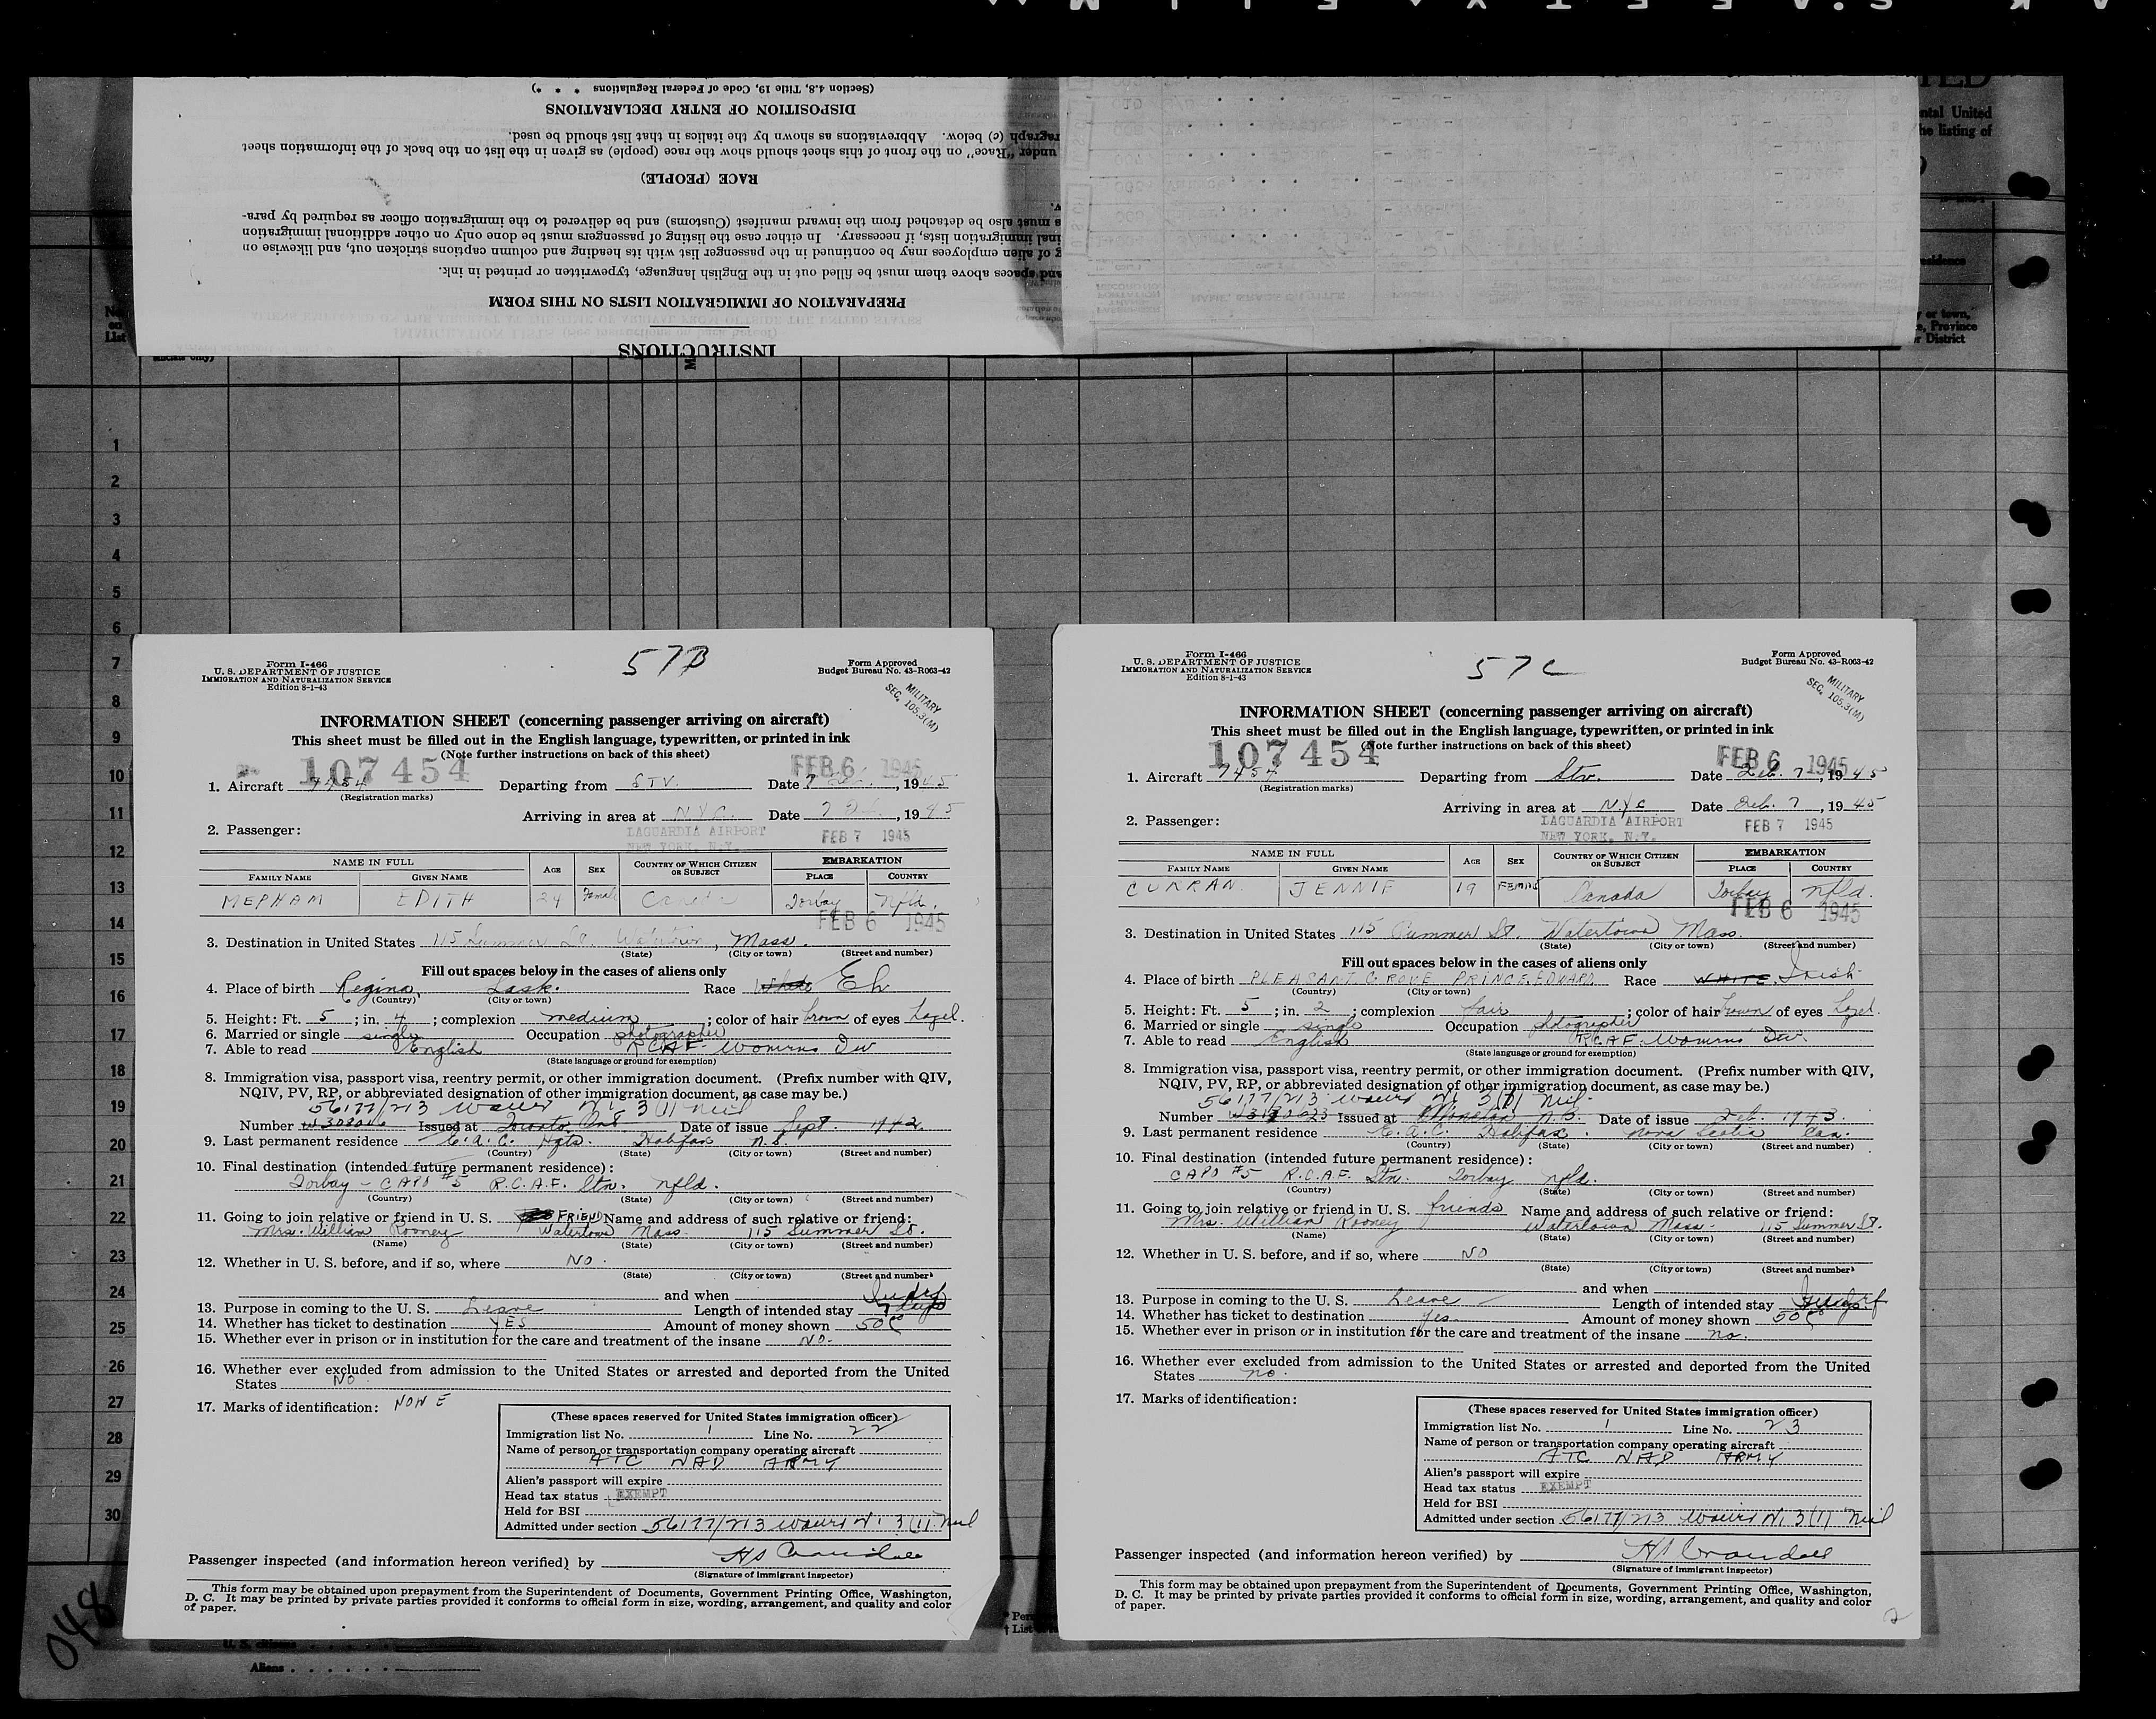 (Section 4.8, Title 19, Code of Federal Regulations * * *)
DISPOSITION OF ENTRY DECLARATIONS
ragraph (c) below. Abbreviations as shown by the italics in that list should be used.
under "Race" on the front of this sheet should show the race (people) as given in the list on the back of the information sheet
RACE (PEOPLE)
s must also be detached from the inward manifest (Customs) and be delivered to the immigration officer as required by para-
inal immigration lists, if necessary. In either case the listing of passengers must be done only on other additional immigration
g of alien employees may be continued in the passenger list with its heading and column captions stricken out, and likewise on
and spaces above them must be filled out in the English language, typewritten or printed in ink.
PREPARATION OF IMMIGRATION LISTS ON THIS FORM
INSTRUCTIONS
ntal United
he listing of
or town,
Province
District
No.
on
List
1
2
3
4
5
6
7
8
9
10
11
12
13
14
15
16
17
18
19
20
21
22
23
24
25
26
27
28
29
30
57B
Form I-466
U. S. DEPARTMENT OF JUSTICE
IMMIGRATION AND NATURALIZATION SERVICE
Edition 8-1-43
Form Approved
Budget Bureau No. 43-R063-42
MILITARY
SEC. 105.3(M)
INFORMATION SHEET (concerning passenger arriving on aircraft)
This sheet must be filled out in the English language, typewritten, or printed in ink
(Note further instructions on back of this sheet)
107454 FEB 6 1945
1. Aircraft 7454 Departing from STV. Date 7 Feb., 1945
(Registration marks)
Arriving in area at N.Y.C. Date 7 Feb., 1945
2. Passenger: LAGUARDIA AIRPORT FEB 7 1945
NEW YORK, N.Y.
NAME IN FULL AGE SEX COUNTRY OF WHICH CITIZEN OR SUBJECT EMBARKATION
FAMILY NAME GIVEN NAME PLACE COUNTRY
MEPHAM EDITH 24 Female Canada Torbay Nfld.
FEB 6 1945
3. Destination in United States 115 Summer St. Watertown, Mass.
(State) (City or town) (Street and number)
Fill out spaces below in the cases of aliens only
4. Place of birth Regina, Sask. Race White Eh
(Country) (City or town)
5. Height: Ft. 5; in. 4; complexion medium; color of hair brown of eyes hazel.
6. Married or single single Occupation photographer
7. Able to read English RCAF Womens Div
(State language or ground for exemption)
8. Immigration visa, passport visa, reentry permit, or other immigration document. (Prefix number with QIV,
NQIV, PV, RP, or abbreviated designation of other immigration document, as case may be.)
56177/213 3(1) Mil
Number W308046 Issued at Toronto Ont Date of issue Sept. 1942
9. Last permanent residence E.A.C. Hqts. Halifax N.S.
(Country) (State) (City or town) (Street and number)
10. Final destination (intended future permanent residence):
Torbay - CAPO #5 R.C.A.F. Stn. Nfld.
(Country) (State) (City or town) (Street and number)
11. Going to join relative or friend in U. S. FRIEND Name and address of such relative or friend:
Mrs. William Rooney Watertown Mass. 115 Summer St.
(Name) (State) (City or town) (Street and number)
12. Whether in U. S. before, and if so, where NO.
(State) (City or town) (Street and number)
and when
13. Purpose in coming to the U. S. Leave Length of intended stay 7 days
14. Whether has ticket to destination YES Amount of money shown 50
15. Whether ever in prison or in institution for the care and treatment of the insane NO.
16. Whether ever excluded from admission to the United States or arrested and deported from the United
States NO.
17. Marks of identification: NONE
(These spaces reserved for United States immigration officer)
Immigration list No. 1 Line No. 22
Name of person or transportation company operating aircraft
ATC NAD ARMY
Alien's passport will expire
Head tax status EXEMPT
Held for BSI
Admitted under section 56177/213 3(1) Mil
Passenger inspected (and information hereon verified) by HS Crandall
(Signature of immigrant inspector)
This form may be obtained upon prepayment from the Superintendent of Documents, Government Printing Office, Washington,
D. C. It may be printed by private parties provided it conforms to official form in size, wording, arrangement, and quality and color
of paper.
57C
Form I-466
U. S. DEPARTMENT OF JUSTICE
IMMIGRATION AND NATURALIZATION SERVICE
Edition 8-1-43
Form Approved
Budget Bureau No. 43-R063-42
MILITARY
SEC. 105.3(M)
INFORMATION SHEET (concerning passenger arriving on aircraft)
This sheet must be filled out in the English language, typewritten, or printed in ink
(Note further instructions on back of this sheet)
107454 FEB 6 1945
1. Aircraft 7454 Departing from Stv. Date Feb. 7, 1945
(Registration marks)
Arriving in area at N.Y.C Date Feb. 7, 1945
2. Passenger: LAGUARDIA AIRPORT FEB 7 1945
NEW YORK, N.Y.
NAME IN FULL AGE SEX COUNTRY OF WHICH CITIZEN OR SUBJECT EMBARKATION
FAMILY NAME GIVEN NAME PLACE COUNTRY
CURRAN. JENNIE 19 FEMALE Canada Torbay Nfld.
FEB 6 1945
3. Destination in United States 115 Summer St. Watertown Mass.
(State) (City or town) (Street and number)
Fill out spaces below in the cases of aliens only
4. Place of birth PLEASANT GROVE PRINCE EDWARD Race WHITE. Irish
(Country) (City or town)
5. Height: Ft. 5; in. 2; complexion fair; color of hair brown of eyes hazel.
6. Married or single single Occupation photographer
7. Able to read English RCAF. Womens Div.
(State language or ground for exemption)
8. Immigration visa, passport visa, reentry permit, or other immigration document. (Prefix number with QIV,
NQIV, PV, RP, or abbreviated designation of other immigration document, as case may be.)
56177/213 3(1) Mil.
Number Issued at Moncton N.B. Date of issue Feb. 1943.
9. Last permanent residence E.A.C. Halifax. Nova Scotia Can.
(Country) (State) (City or town) (Street and number)
10. Final destination (intended future permanent residence):
CAPO #5 R.C.A.F. Stn. Torbay Nfld.
(Country) (State) (City or town) (Street and number)
11. Going to join relative or friend in U. S. friends Name and address of such relative or friend:
Mrs. William Rooney Watertown Mass. 115 Summer St.
(Name) (State) (City or town) (Street and number)
12. Whether in U. S. before, and if so, where NO
(State) (City or town) (Street and number)
and when
13. Purpose in coming to the U. S. Leave Length of intended stay
14. Whether has ticket to destination Yes. Amount of money shown 50
15. Whether ever in prison or in institution for the care and treatment of the insane no.
16. Whether ever excluded from admission to the United States or arrested and deported from the United
States no.
17. Marks of identification:
(These spaces reserved for United States immigration officer)
Immigration list No. 1 Line No. 23
Name of person or transportation company operating aircraft
ATC NAD ARMY
Alien's passport will expire
Head tax status EXEMPT
Held for BSI
Admitted under section 56177/213 3(1) Mil
Passenger inspected (and information hereon verified) by HS Crandall
(Signature of immigrant inspector)
This form may be obtained upon prepayment from the Superintendent of Documents, Government Printing Office, Washington,
D. C. It may be printed by private parties provided it conforms to official form in size, wording, arrangement, and quality and color
of paper.
2
048
U. S. citizens
Aliens